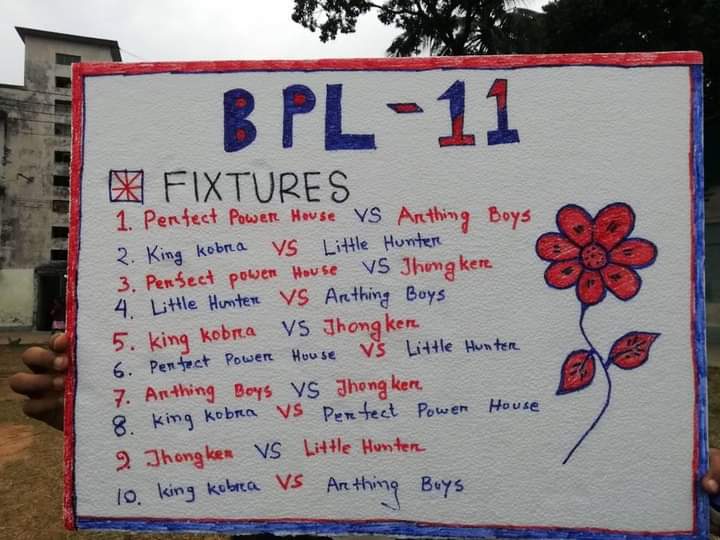 BPL-11
FIXTURES
1. Perfect Power House VS Arthing Boys
2. King kobra VS Little Hunter
3. Perfect power House VS Jhongker
4. Little Hunter VS Arthing Boys
5. king kobra VS Jhongker
6. Perfect Power House VS Little Hunter
7. Arthing Boys VS Jhongker
8. king kobra VS Perfect Power House
9. Jhongker VS Little Hunter
10. king kobra VS Arthing Boys